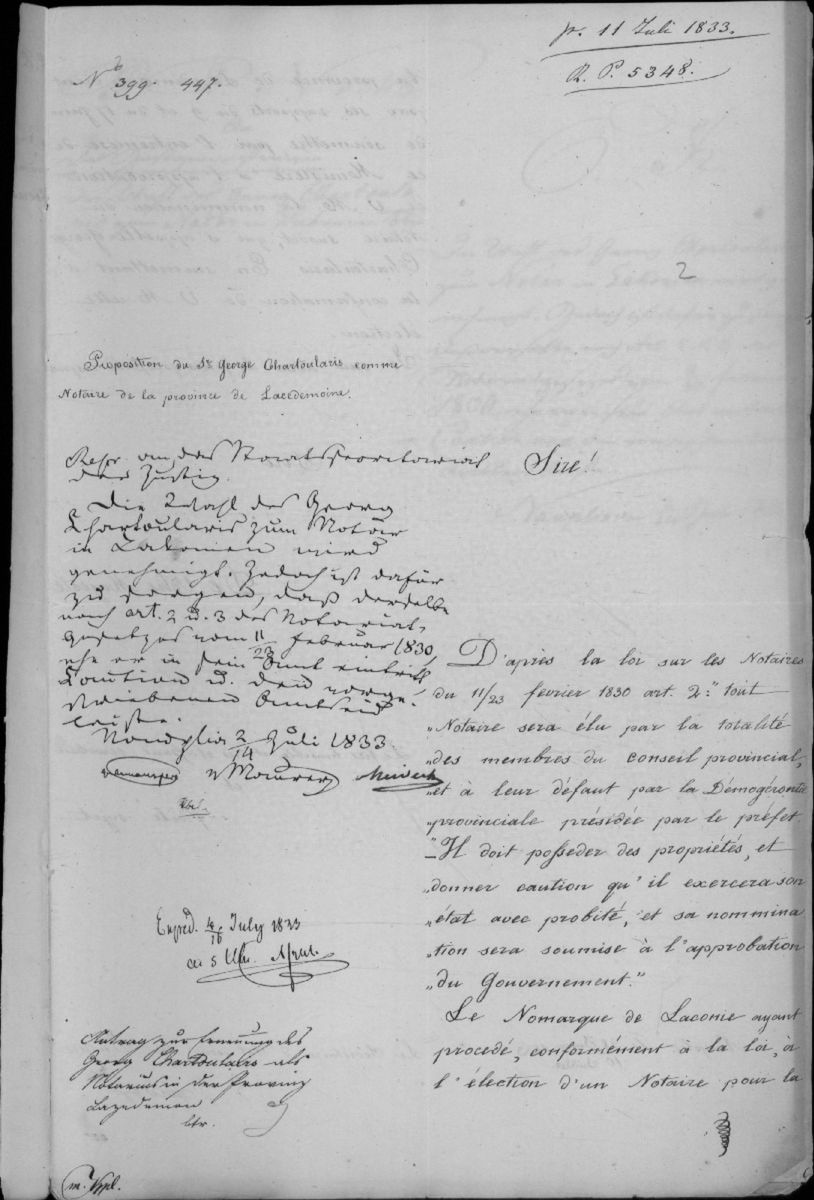 pr. 11 Juli 1833.
R. P. 5348.
No 399. 447.
2
Proposition du Sr. George Chartoularis comme
Notaire de la province de Lacédemoine.
Rescr. an das Staatssecretariat
der Justiz.
Die Wahl des Georg
Chartoularis zum Notär
in Lakonien wird
genehmigt. Jedoch ist dafür
zu sorgen, daß derselbe
nach art. 2 u. 3 des Notariats-
gesetzes vom 11/23 Februar 1830,
ehe er in sein Amt eintritt
Caution u. den vorge-
schriebenen Amtseid
leiste.
Nauplia 2/14 Juli 1833.
v Maurer Heideck
Exped. 4/16 July 1833
Antrag zur Ernennung des
Georg Chartoularis als
Notarius in der Provinz
Lazedemon
Sire!
D'après la loi sur les Notaires
du 11/23 fevrier 1830 art. 2." tout
"Notaire sera élu par la totalité
"des membres du conseil provincial,
"et à leur défaut par la Démogérontie
"provinciale présidée par le préfet.
"Il doit posseder des propriétés, et
"donner caution qu'il exercera son
"état avec probité, et sa nommina
"tion sera soumise à l'approbation
"du Gouvernement."
Le Nomarque de Laconie ayant
procedé, conformément à la loi, à
l'élection d'un Notaire pour la